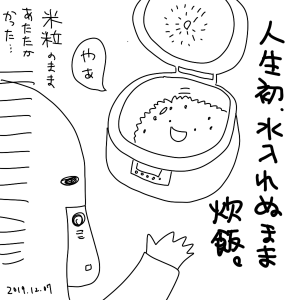 人生初、水入れぬまま
炊飯。
やあ
米粒のまま
あたたか
かった…
2019.12.07